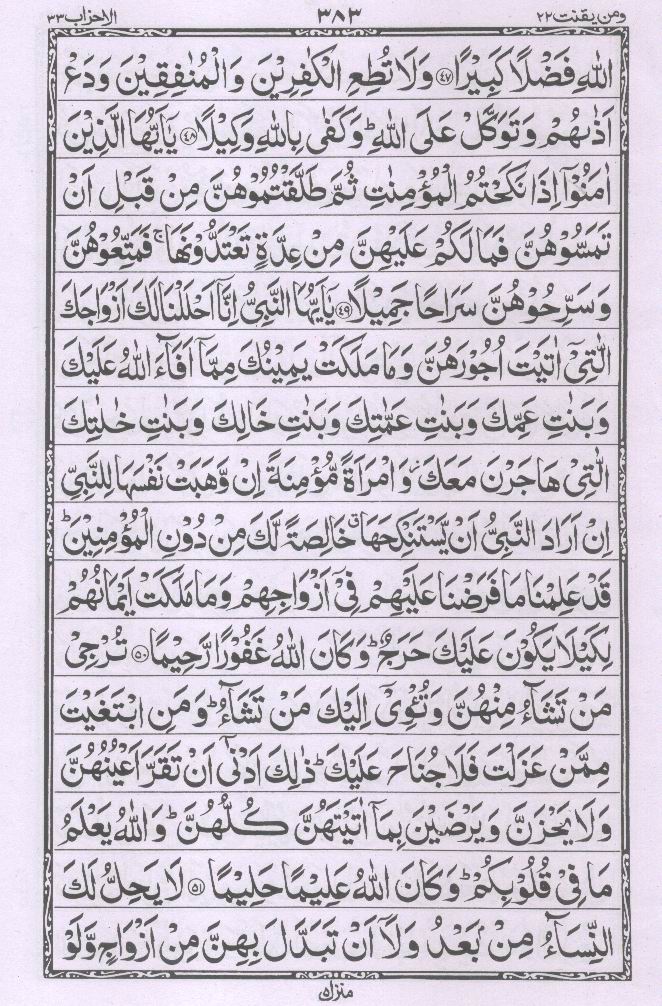 ومن یقنت ٢٢ ٣٨٣ الاحزاب ٣٣
اللهِ فَضْلًا كَبِيْرًا ﴿٤٧﴾ وَلَا تُطِعِ الْكٰفِرِيْنَ وَالْمُنٰفِقِيْنَ وَدَعْ
اَذٰىهُمْ وَتَوَكَّلْ عَلَى اللهِ ؕ وَكَفٰى بِاللهِ وَكِيْلًا ﴿٤٨﴾ يٰۤاَيُّهَا الَّذِيْنَ
اٰمَنُوْۤا اِذَا نَكَحْتُمُ الْمُؤْمِنٰتِ ثُمَّ طَلَّقْتُمُوْهُنَّ مِنْ قَبْلِ اَنْ
تَمَسُّوْهُنَّ فَمَا لَكُمْ عَلَيْهِنَّ مِنْ عِدَّةٍ تَعْتَدُّوْنَهَا ۚ فَمَتِّعُوْهُنَّ
وَسَرِّحُوْهُنَّ سَرَاحًا جَمِيْلًا ﴿٤٩﴾ يٰۤاَيُّهَا النَّبِىُّ اِنَّاۤ اَحْلَلْنَا لَكَ اَزْوَاجَكَ
الّٰتِىْۤ اٰتَيْتَ اُجُوْرَهُنَّ وَمَا مَلَكَتْ يَمِيْنُكَ مِمَّاۤ اَفَآءَ اللهُ عَلَيْكَ
وَبَنٰتِ عَمِّكَ وَبَنٰتِ عَمّٰتِكَ وَبَنٰتِ خَالِكَ وَبَنٰتِ خٰلٰتِكَ
الّٰتِىْ هَاجَرْنَ مَعَكَ ؗ وَامْرَاَةً مُّؤْمِنَةً اِنْ وَّهَبَتْ نَفْسَهَا لِلنَّبِىِّ
اِنْ اَرَادَ النَّبِىُّ اَنْ يَّسْتَنْكِحَهَا ۗ خَالِصَةً لَّكَ مِنْ دُوْنِ الْمُؤْمِنِيْنَ ؕ
قَدْ عَلِمْنَا مَا فَرَضْنَا عَلَيْهِمْ فِىْۤ اَزْوَاجِهِمْ وَمَا مَلَكَتْ اَيْمَانُهُمْ
لِكَيْلَا يَكُوْنَ عَلَيْكَ حَرَجٌ ؕ وَكَانَ اللهُ غَفُوْرًا رَّحِيْمًا ﴿٥٠﴾ تُرْجِىْ
مَنْ تَشَآءُ مِنْهُنَّ وَتُـْٔوِىْۤ اِلَيْكَ مَنْ تَشَآءُ ؕ وَمَنِ ابْتَغَيْتَ
مِمَّنْ عَزَلْتَ فَلَا جُنَاحَ عَلَيْكَ ؕ ذٰلِكَ اَدْنٰۤى اَنْ تَقَرَّ اَعْيُنُهُنَّ
وَلَا يَحْزَنَّ وَيَرْضَيْنَ بِمَاۤ اٰتَيْتَهُنَّ كُلُّهُنَّ ؕ وَاللهُ يَعْلَمُ
مَا فِىْ قُلُوْبِكُمْ ؕ وَكَانَ اللهُ عَلِيْمًا حَلِيْمًا ﴿٥١﴾ لَا يَحِلُّ لَكَ
النِّسَآءُ مِنْۢ بَعْدُ وَلَاۤ اَنْ تَبَدَّلَ بِهِنَّ مِنْ اَزْوَاجٍ وَّلَوْ
منزل ٥